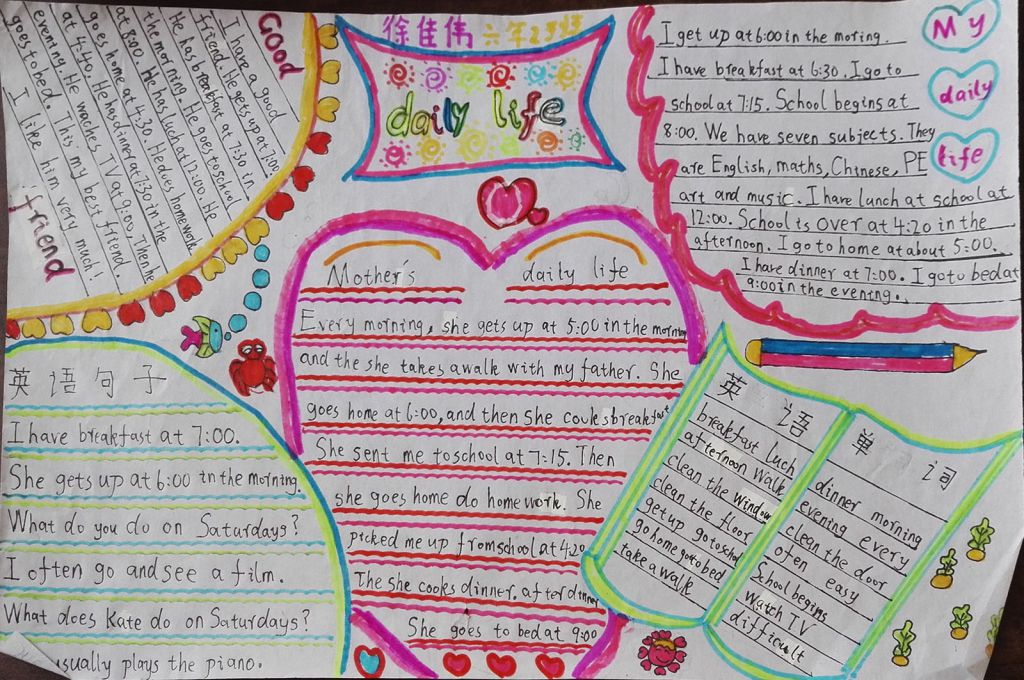 徐佳伟 六年23班
daily life
Good
friend
I have a good
friend. He gets up at 7:00.
He has breakfast at 7:30 in
the morning. He goes to school
at 8:00. He has luch at 12:00. He
goes home at 4:30. He does homework
at 4:40. He has dinner at 7:30 in the
evening. He waches TV at 9:00. Then he
goes to bed. This my best friend.
I like him very much!
My
daily
life
I get up at 6:00 in the moring.
I have breakfast at 6:30. I go to
school at 7:15. School begins at
8:00. We have seven subjects. They
are English, maths, Chinese, PE
art and music. I have lunch at school at
12:00. School is over at 4:20 in the
afternoon. I go to home at about 5:00.
I have dinner at 7:00. I go to bed at
9:00 in the eventng.
Mother's daily life
Every morning, she gets up at 5:00 in the morning
and the she takes a walk with my father. She
goes home at 6:00, and then she couks breakfast
She sent me to school at 7:15. Then
she goes home do home work. She
picked me up from school at 4:20
The she cooks dinner. after dinner
She goes to bed at 9:00
英语句子
I have breakfast at 7:00.
She gets up at 6:00 in the morning.
What do you do on Saturdays?
I often go and see a film.
What does Kate do on Saturdays?
usually plays the piano.
英语
breakfast luch
afternoon walk
clean the window
clean the floor
get up go to school
go home go to bed
take a walk
单词
dinner morning
evening every
clean the door
often easy
School begins
Watch TV
difficult